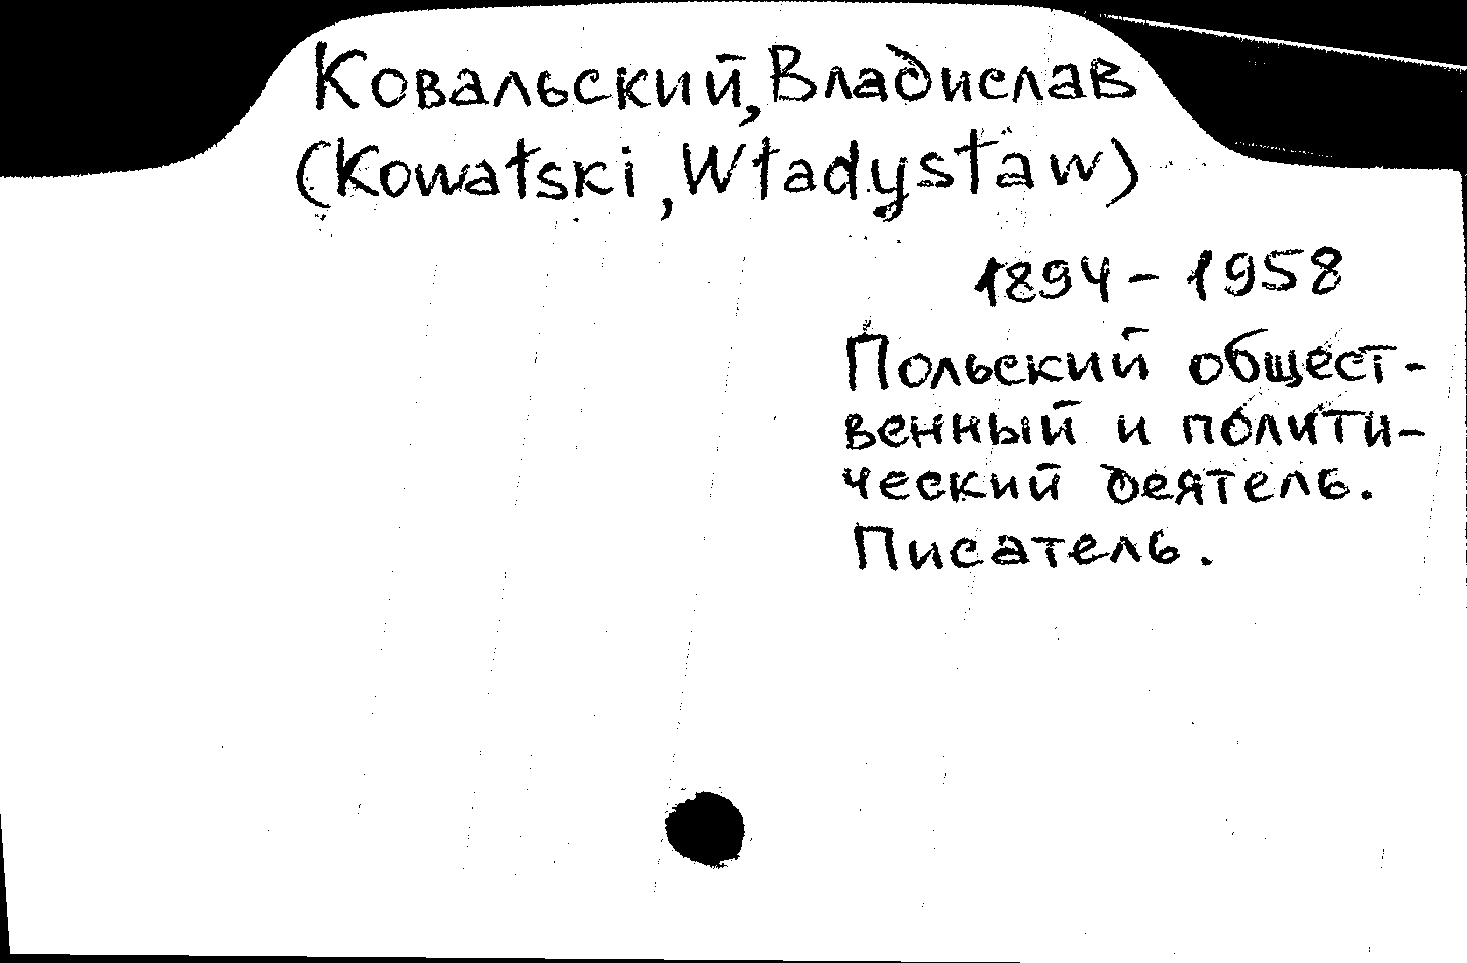 Ковальский, Владислав
(Kowałski, Władysław)
1894 - 1958
Польский общест-
венный и полити-
ческий деятель.
Писатель.